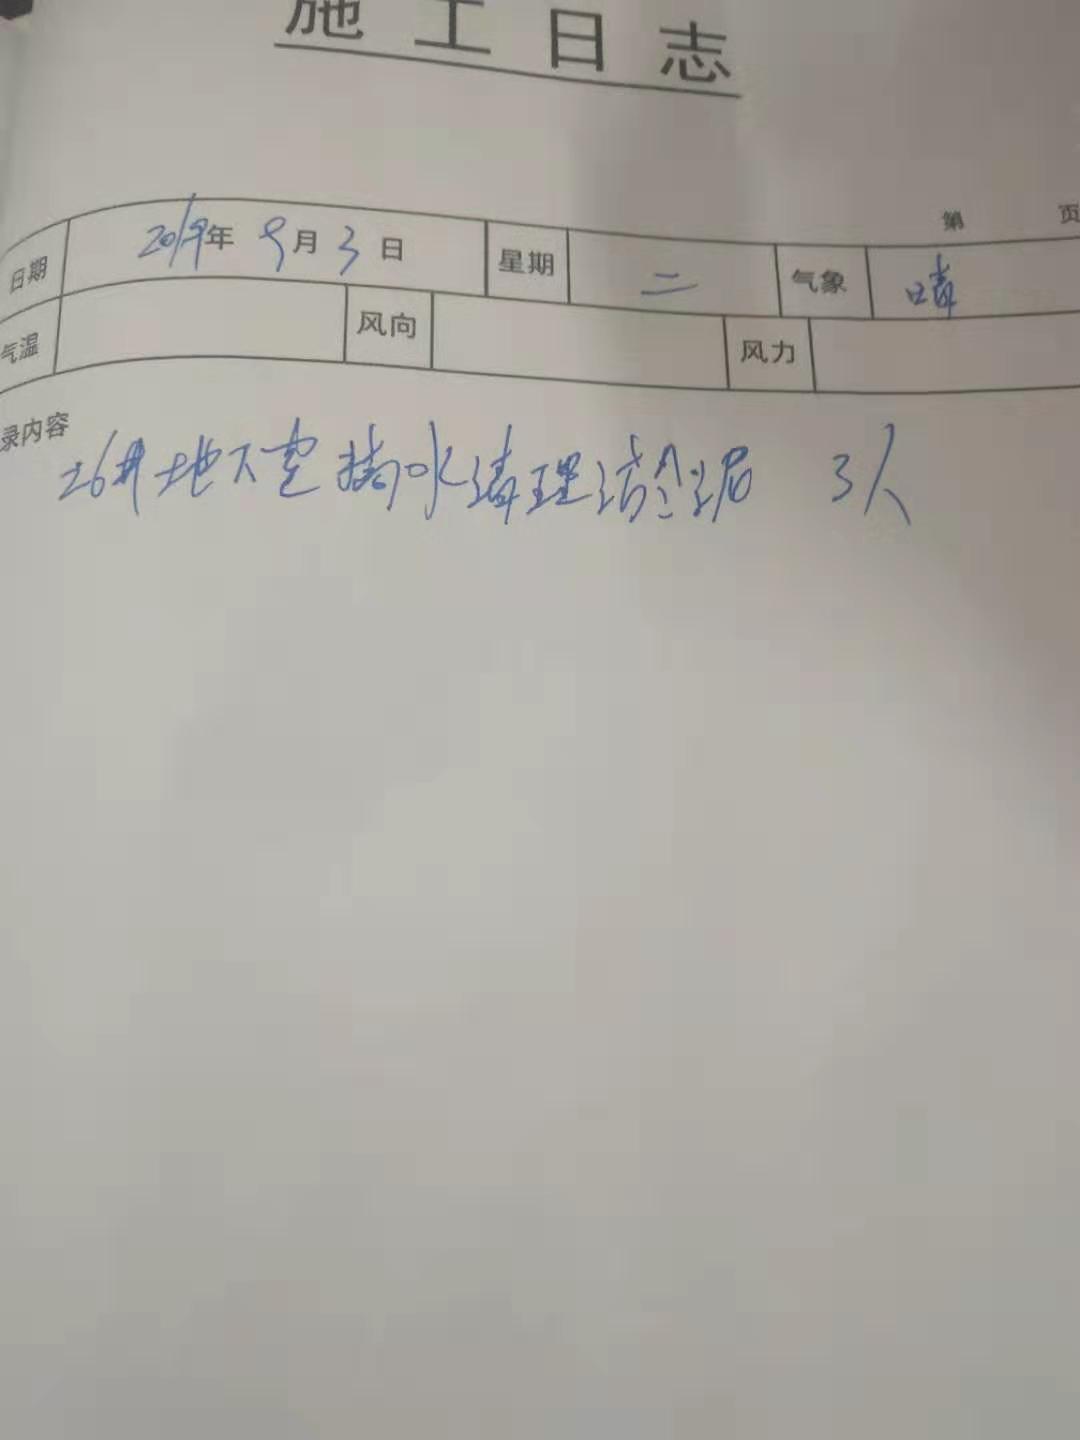 施工日志
第 页
日期 2019年 9月 3日 星期 二 气象 晴
气温 风向 风力
录内容
26# 地下室 水清理 泥 3人